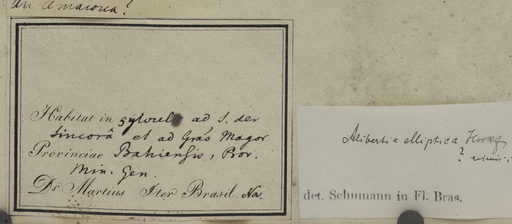 an Amaioua?
Habitat in sylvul ad S. der
Sincorâ et ad Grão Magor
Provinciae Bahiensis, Prov.
Min. Gen.
Dr. Martius Iter Brasil. Nov.
Alibertia elliptica Hook f
?
det. Schumann in Fl. Bras.